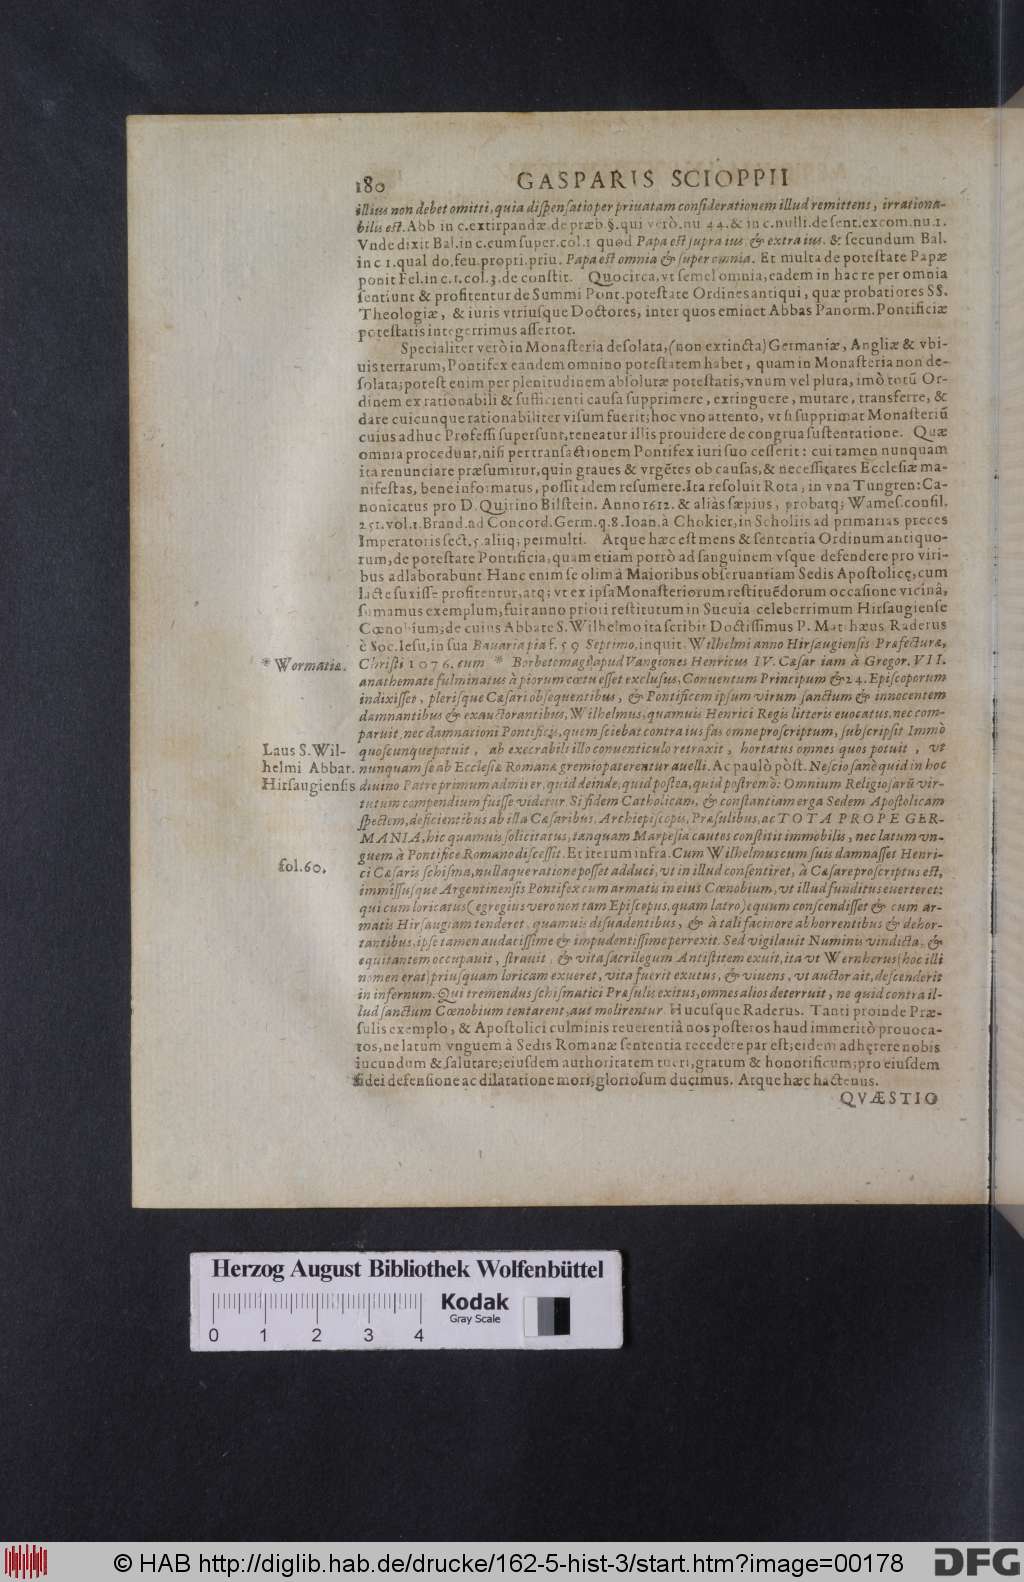 180
GASPARIS SCIOPPII
illius non debet omitti, quia dispensatio per priuatam considerationem illud remittens, irrationa-
bilis est. Abb in c. extirpandæ. de præb. §. qui verò. nu 44. & in c. nulli. de sent. excom. nu. 1.
Vnde dixit Bal. in c. cum super. col. 1 quod Papa est supra ius, & extra ius. & secundum Bal.
in c 1. qual do. feu. propri. priu. Papa est omnia & super omnia. Et multa de potestate Papæ
ponit Fel. in c. 1. col. 3. de constit. Quocirca, vt semel omnia, eadem in hac re per omnia
sentiunt & profitentur de Summi Pont. potestate Ordines antiqui, quæ probatiores SS.
Theologiæ, & iuris vtriusque Doctores, inter quos eminet Abbas Panorm. Pontificiæ
potestatis integerrimus assertor.
Specialiter verò in Monasteria desolata, (non extincta) Germaniæ, Angliæ & vbi-
uis terrarum, Pontifex eandem omnino potestatem habet, quam in Monasteria non de-
solata; potest enim per plenitudinem absolutæ potestatis, vnum vel plura, imò totũ Or-
dinem ex rationabili & sufficienti causa supprimere, extinguere, mutare, transferre, &
dare cuicunque rationabiliter visum fuerit; hoc vno attento, vt si supprimat Monasteriũ
cuius adhuc Professi supersunt, teneatur illis prouidere de congrua sustentatione. Quæ
omnia procedunt, nisi per transactionem Pontifex iuri suo cesserit: cui tamen nunquam
ita renunciare præsumitur, quin graues & vrgẽtes ob causas, & necessitates Ecclesiæ ma-
nifestas, bene informatus, possit idem resumere. Ita resoluit Rota, in vna Tungren: Ca-
nonicatus pro D. Quirino Bilstein. Anno 1612. & aliàs sæpius, probatq; Wames. consil.
251. vol. 1. Brand. ad Concord. Germ. q. 8. Ioan. à Chokier, in Scholiis ad primarias preces
Imperatoris sect. 5. aliiq; permulti. Atque hæc est mens & sententia Ordinum antiquo-
rum, de potestate Pontificia, quam etiam porrò ad sanguinem vsque defendere pro viri-
bus adlaborabunt. Hanc enim se olim à Maioribus obseruantiam Sedis Apostolicę, cum
lacte suxisse profitentur, atq; vt ex ipsa Monasteriorum restituẽdorum occasione vicinâ,
sumamus exemplum, fuit anno priori restitutum in Sueuia celeberrimum Hirsaugiense
Cœnobium; de cuius Abbate S. Wilhelmo ita scribit Doctissimus P. Matthæus Raderus
è Soc. Iesu, in sua Bauaria pia f. 59 Septimo, inquit, Wilhelmi anno Hirsaugiensis Præfecturæ,
* Wormatiæ.
Christi 1076. cum * Borbetomagi apud Vangiones Henricus IV. Cæsar iam à Gregor. VII.
anathemate fulminatus à piorum cœtu esset exclusus, Conuentum Principum & 24. Episcoporum
indixisset, plerisque Cæsari obsequentibus, & Pontificem ipsum virum sanctum & innocentem
damnantibus & exauctorantibus, Wilhelmus, quamuis Henrici Regis litteris euocatus, nec com-
paruit, nec damnationi Pontificis, quem sciebat contra ius fas omne proscriptum, subscripsit Immò
Laus S. Wil-
helmi Abbat.
Hirsaugiensis
quoscunque potuit, ab execrabili illo conuenticulo retraxit, hortatus omnes quos potuit, vt
nunquam se ab Ecclesiæ Romanæ gremio paterentur auelli. Ac paulò pòst. Nescio sanè quid in hoc
diuino Patre primum admirer, quid deinde, quid postea, quid postremò: Omnium Religiosarũ vir-
tutum compendium fuisse videtur. Si fidem Catholicam, & constantiam erga Sedem Apostolicam
spectem, deficientibus ab illa Cæsaribus, Archiepiscopis, Præsulibus, ac TOTA PROPE GER-
MANIA, hic quamuis solicitatus, tanquam Marpesia cautes constitit immobilis, nec latum vn-
guem à Pontifice Romano discessit. Et iterum infra. Cum Wilhelmus cum suis damnasset Henri-
fol. 60.
ci Cæsaris schisma, nullaque ratione posset adduci, vt in illud consentiret, à Cæsare proscriptus est,
immissusque Argentinensis Pontifex cum armatis in eius Cœnobium, vt illud funditus euerteret:
qui cum loricatus (egregius vero non tam Episcopus, quam latro) equum conscendisset & cum ar-
matis Hirsaugiam tenderet, quamuis dissuadentibus, & à tali facinore abhorrentibus & dehor-
tantibus, ipse tamen audacissime & impudentissime perrexit. Sed vigilauit Numinis vindicta, &
equitantem occupauit, strauit, & vita sacrilegum Antistitem exuit, ita vt Wernherus (hoc illi
nomen erat) priusquam loricam exueret, vita fuerit exutus, & viuens, vt auctor ait, descenderit
in infernum. Qui tremendus schismatici Præsulis exitus, omnes alios deterruit, ne quid contra il-
lud sanctum Cœnobium tentarent, aut molirentur. Hucusque Raderus. Tanti proinde Præ-
sulis exemplo, & Apostolici culminis reuerentiâ nos posteros haud immeritò prouoca-
tos, ne latum vnguem à Sedis Romanæ sententia recedere par est; eidem adhęrere nobis
iucundum & salutare; eiusdem authoritatem tueri, gratum & honorificum; pro eiusdem
fidei defensione ac dilatatione mori, gloriosum ducimus. Atque hæc hactenus.
QVÆSTIO
Herzog August Bibliothek Wolfenbüttel
0 1 2 3 4
Kodak
Gray Scale
© HAB http://diglib.hab.de/drucke/162-5-hist-3/start.htm?image=00178
DFG